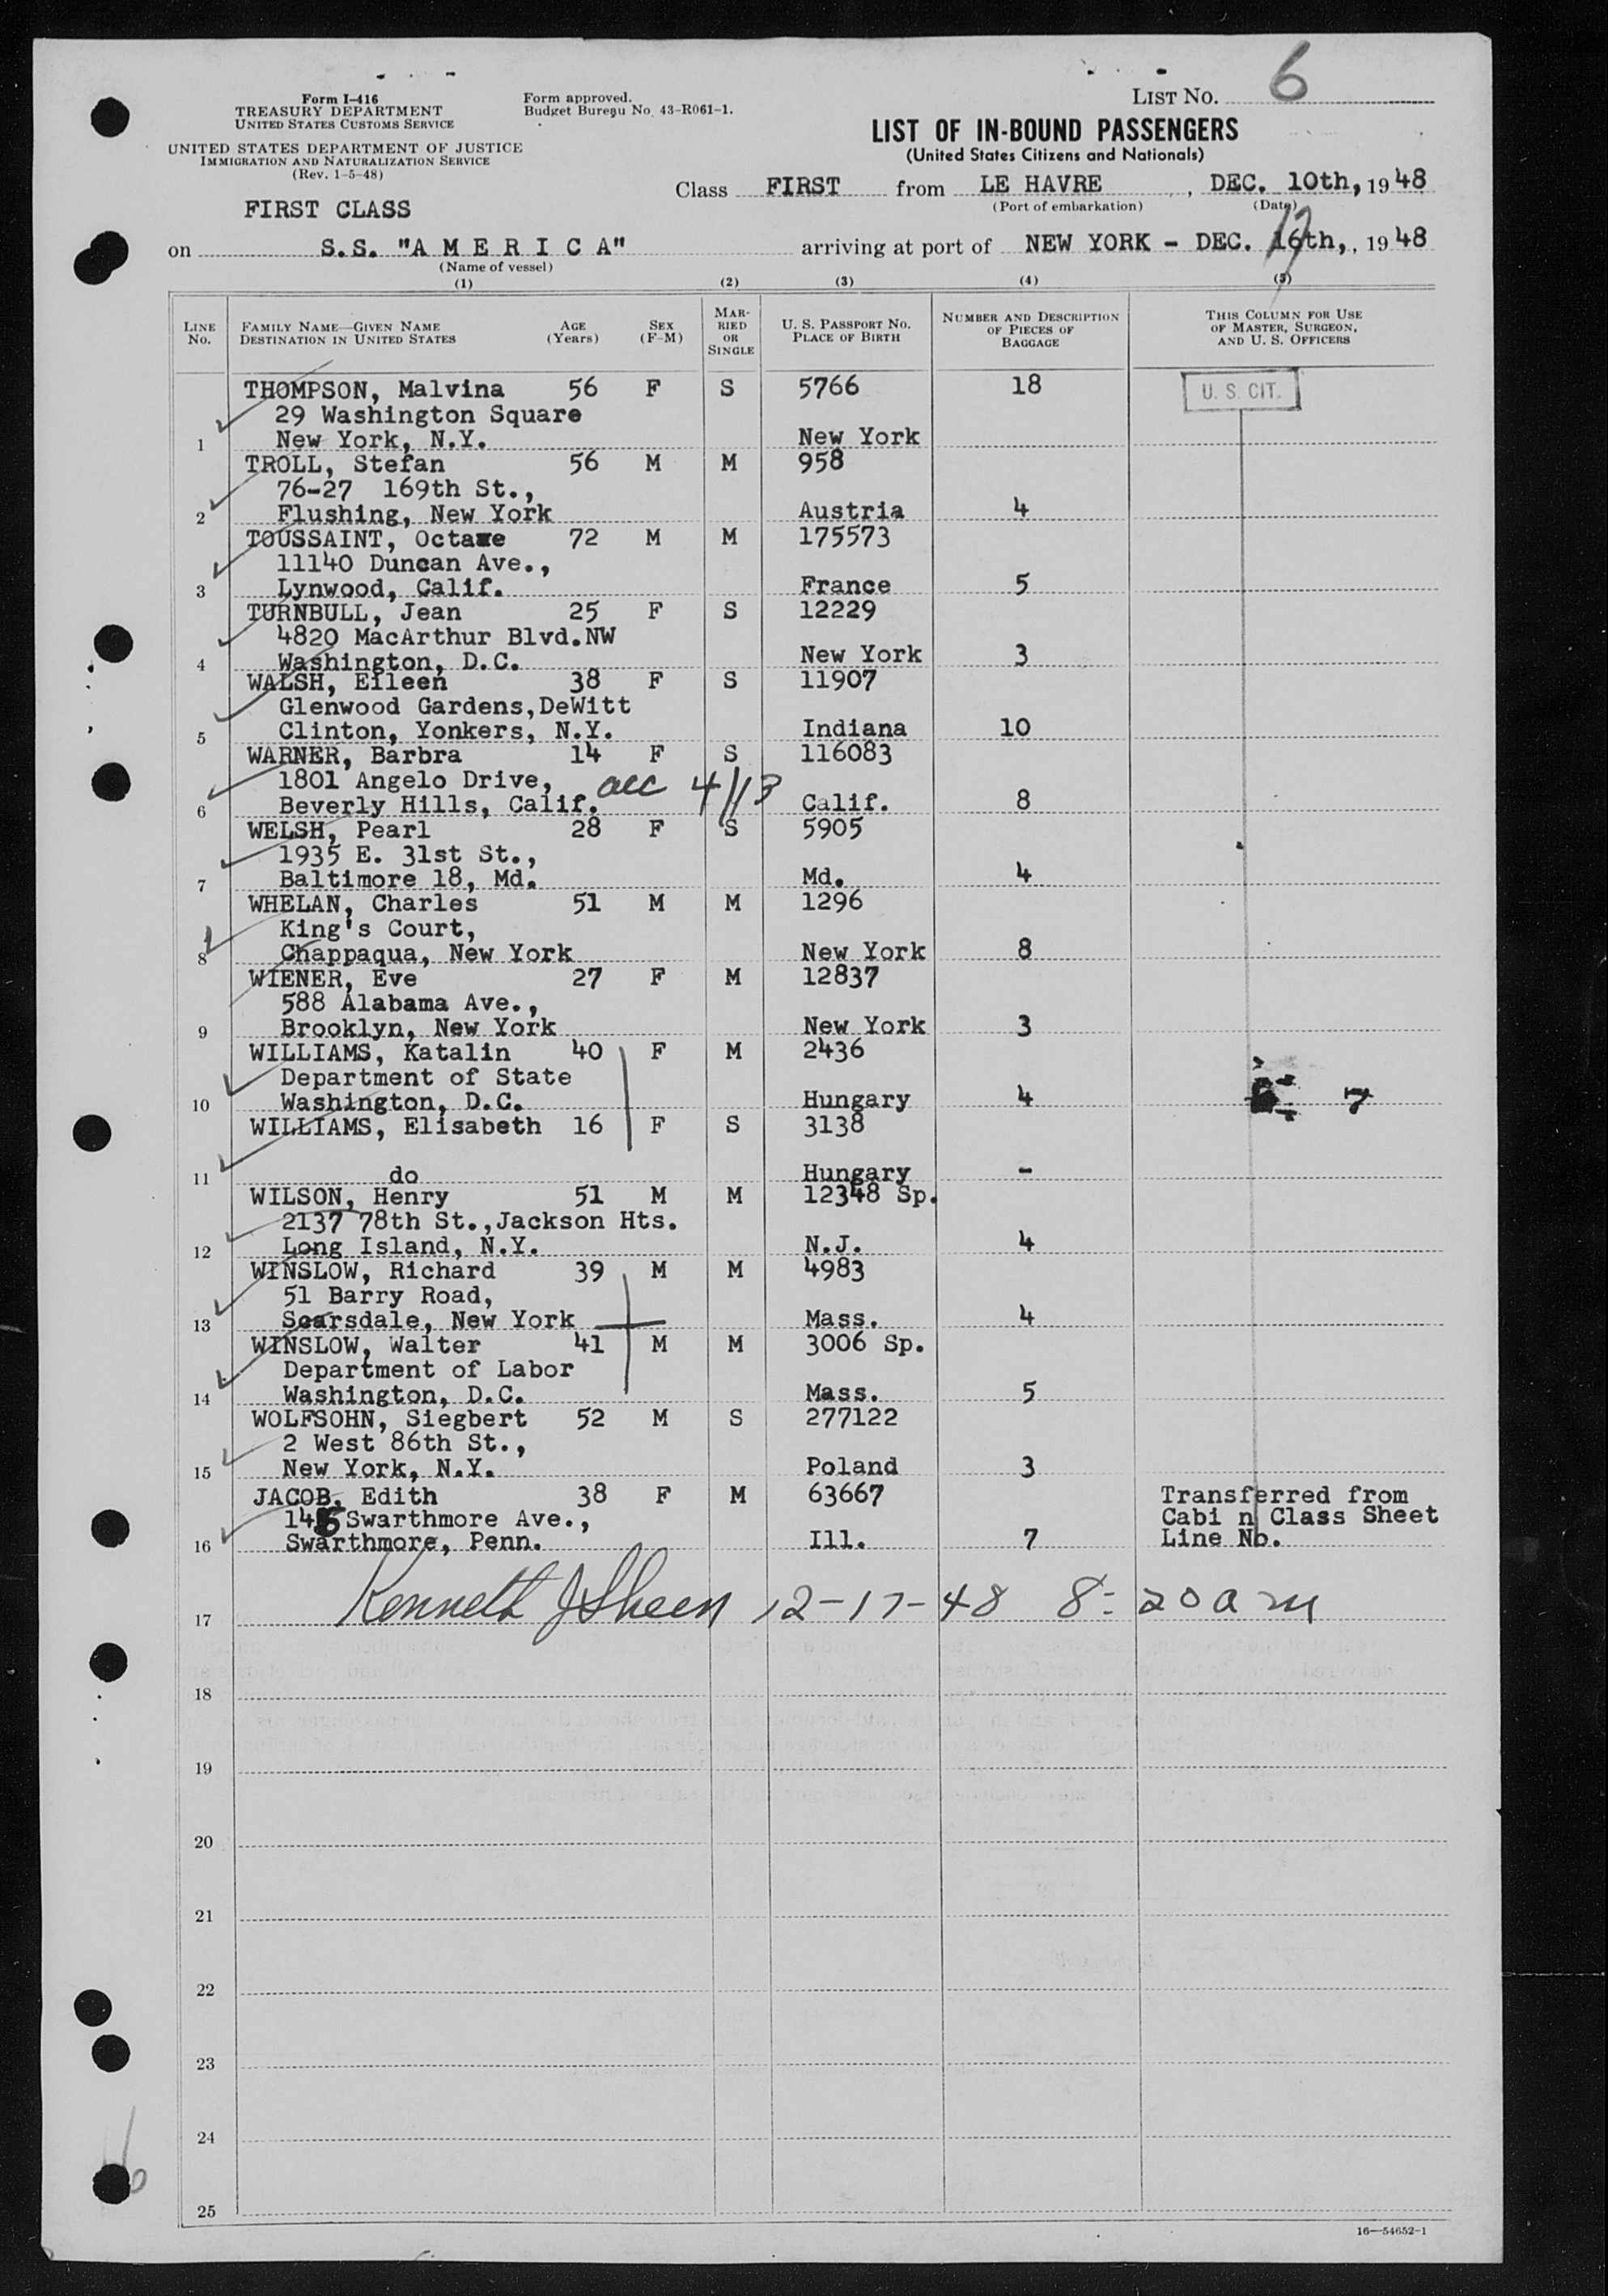 LIST NO. 6
Form I-416
TREASURY DEPARTMENT
UNITED STATES CUSTOMS SERVICE
Form approved.
Budget Bureau No. 43-R061-1.
UNITED STATES DEPARTMENT OF JUSTICE
IMMIGRATION AND NATURALIZATION SERVICE
(Rev. 1-5-48)
LIST OF IN-BOUND PASSENGERS
(United States Citizens and Nationals)
Class FIRST from LE HAVRE, DEC. 10th, 1948
(Port of embarkation) (Date)
FIRST CLASS
on S.S. "A M E R I C A" arriving at port of NEW YORK - DEC. 16th, 17, 1948
(Name of vessel)
(1) (2) (3) (4) (5)
LINE NO. FAMILY NAME—GIVEN NAME DESTINATION IN UNITED STATES AGE (Years) SEX (F-M) MARRIED OR SINGLE U. S. PASSPORT NO. PLACE OF BIRTH NUMBER AND DESCRIPTION OF PIECES OF BAGGAGE THIS COLUMN FOR USE OF MASTER, SURGEON, AND U. S. OFFICERS
THOMPSON, Malvina 56 F S 5766 18 U. S. CIT.
29 Washington Square
1 New York, N.Y. New York
TROLL, Stefan 56 M M 958
76-27 169th St.,
2 Flushing, New York Austria 4
TOUSSAINT, Octave 72 M M 175573
11140 Duncan Ave.,
3 Lynwood, Calif. France 5
TURNBULL, Jean 25 F S 12229
4820 MacArthur Blvd.NW
4 Washington, D.C. New York 3
WALSH, Eileen 38 F S 11907
Glenwood Gardens,DeWitt
5 Clinton, Yonkers, N.Y. Indiana 10
WARNER, Barbra 14 F S 116083
1801 Angelo Drive, acc 4/13
6 Beverly Hills, Calif. Calif. 8
WELSH, Pearl 28 F S 5905
1935 E. 31st St.,
7 Baltimore 18, Md. Md. 4
WHELAN, Charles 51 M M 1296
King's Court,
8 Chappaqua, New York New York 8
WIENER, Eve 27 F M 12837
588 Alabama Ave.,
9 Brooklyn, New York New York 3
WILLIAMS, Katalin 40 F M 2436
Department of State
10 Washington, D.C. Hungary 4 7
WILLIAMS, Elisabeth 16 F S 3138
11 do Hungary -
WILSON, Henry 51 M M 12348 Sp.
2137 78th St.,Jackson Hts.
12 Long Island, N.Y. N.J. 4
WINSLOW, Richard 39 M M 4983
51 Barry Road,
13 Scarsdale, New York Mass. 4
WINSLOW, Walter 41 M M 3006 Sp.
Department of Labor
14 Washington, D.C. Mass. 5
WOLFSOHN, Siegbert 52 M S 277122
2 West 86th St.,
15 New York, N.Y. Poland 3
JACOB, Edith 38 F M 63667 Transferred from
Swarthmore Ave., Cabi n Class Sheet
16 Swarthmore, Penn. Ill. 7 Line No.
17 Kenneth J Sheen 12-17-48 8:20 a m
18
19
20
21
22
23
24
25
16—54652-1